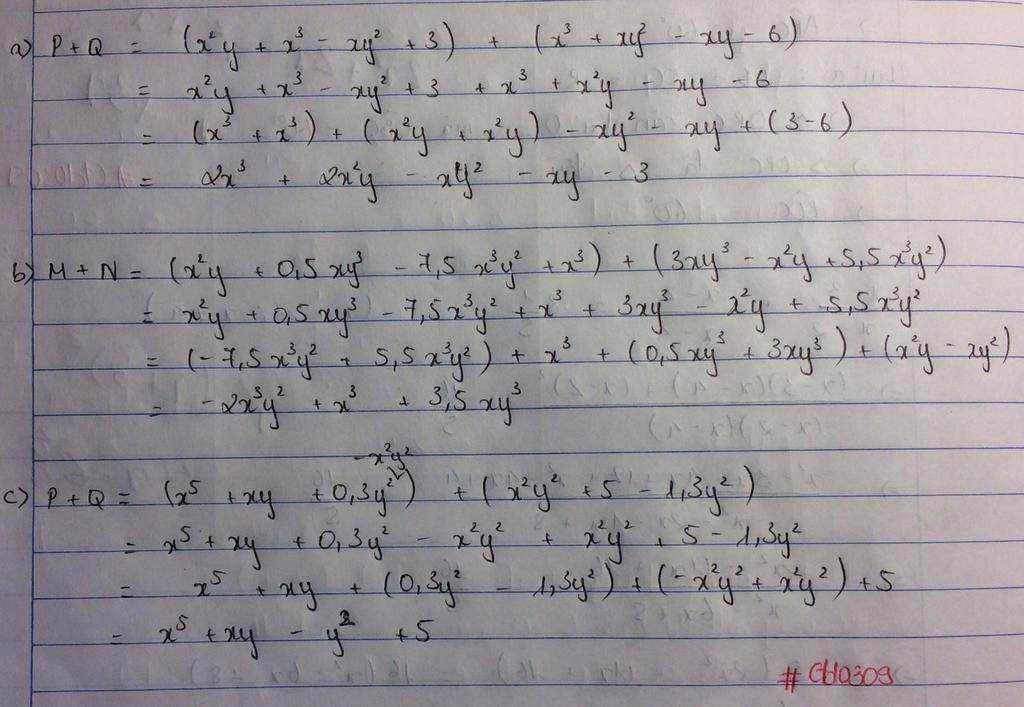 a) P + Q = (x²y + x³ - xy² + 3) + (x³ + xy² - xy - 6)
= x²y + x³ - xy² + 3 + x³ + x²y - xy - 6
= (x³ + x³) + (x²y + x²y) - xy² - xy + (3 - 6)
= 2x³ + 2x²y - xy² - xy - 3
b) M + N = (x²y + 0,5 xy³ - 7,5 x³y² + x³) + (3xy³ - x²y + 5,5 x³y²)
= x²y + 0,5 xy³ - 7,5 x³y² + x³ + 3xy³ - x²y + 5,5 x³y²
= (-7,5 x³y² + 5,5 x³y²) + x³ + (0,5 xy³ + 3xy³) + (x²y - xy²)
= -2x³y² + x³ + 3,5 xy³
- x²y²
c) P + Q = (x⁵ + xy + 0,3y²) + (x²y² + 5 - 1,3y²)
= x⁵ + xy + 0,3y² - x²y² + x²y² + 5 - 1,3y²
= x⁵ + xy + (0,3y² - 1,3y²) + (-x²y² + x²y²) + 5
= x⁵ + xy - y² + 5